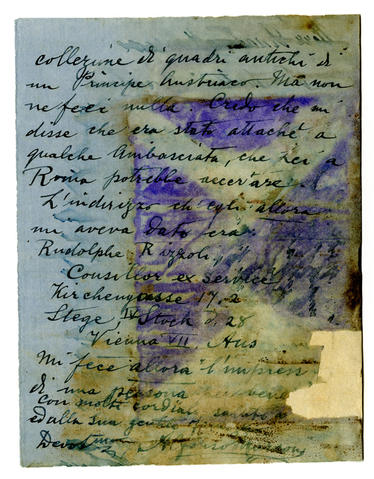 collezione di quadri antichi di
un Principe Austriaco. Ma non
ne feci nulla. Credo che mi
disse che era stato attaché a
qualche Ambasciata, che Lei a
Roma potrebbe accertare.
L'indirizzo ch'egli allora
mi aveva dato era:
Rudolphe Rizzoli,
Consillor ex service
Kirchengasse 17. 2
Stege, IV Stock d. 28
Vienna VII. Aus
Mi fece allora l'impress
di una persona perbene
con molti cordiali saluti a
ed alla sua gentile
Devot